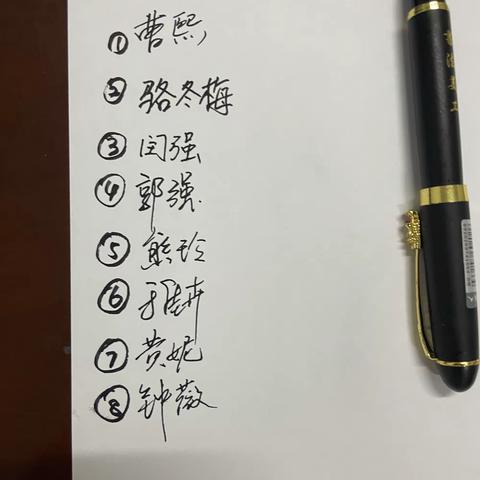 ①曹熙
②骆冬梅
③闫强
④郭强
⑤熊玲
⑥于佳卉
⑦黄妮
⑧钟薇